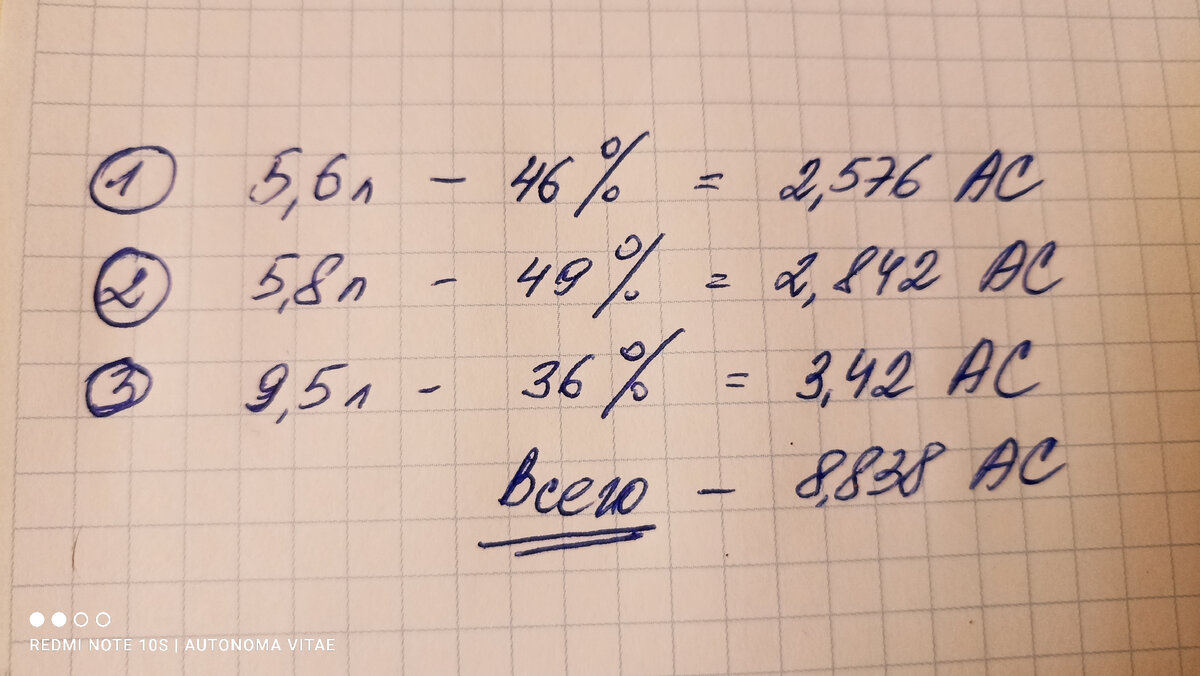 1 5,6л - 46% = 2,576 АС
2 5,8л - 49% = 2,842 АС
3 9,5л - 36% = 3,42 АС
Всего - 8,838 АС
REDMI NOTE 10S | AUTONOMA VITAE